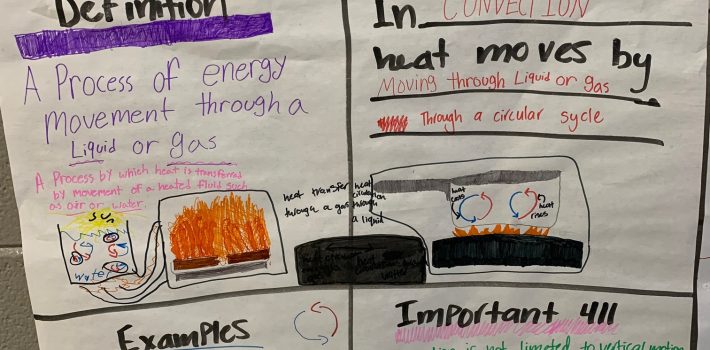 Definition
A Process of energy
movement through a
Liquid or gas
A Process by which heat is transferred
by movement of a heated fluid such
as air or water.
sun
water
heat transfer
through a gas
heat
circulation
through
a liquid
Examples
In CONVECTION
heat moves by
Moving through Liquid or gas
Through a circular sycle
heat
heat
rises
Important 411
is not limited to vertical motion